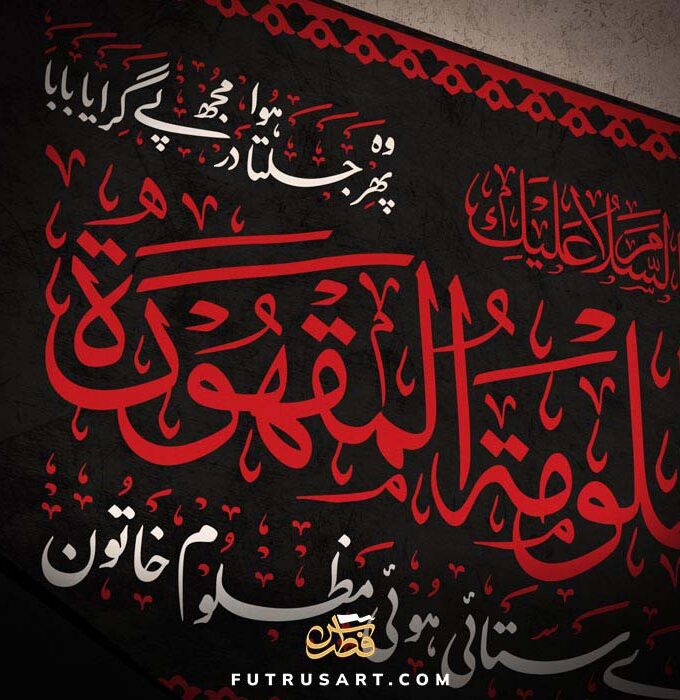 پھر وہ جلتا ہوا در مجھ پے گرایا بابا
السَّلَامُ عَلَيْكِ
لُومَةُ الْمَقْهُورَةُ
ے ستائی ہوئی مظلوم خاتون
فطرس
FUTRUSART.COM